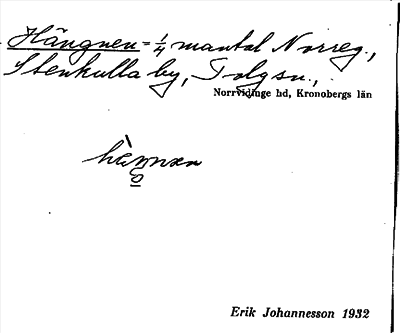 Hängnen = 1/4 mantal Norreg.,
Stenkulla by, Tolgsn.,
Norrvidinge hd, Kronobergs län
Erik Johannesson 1932